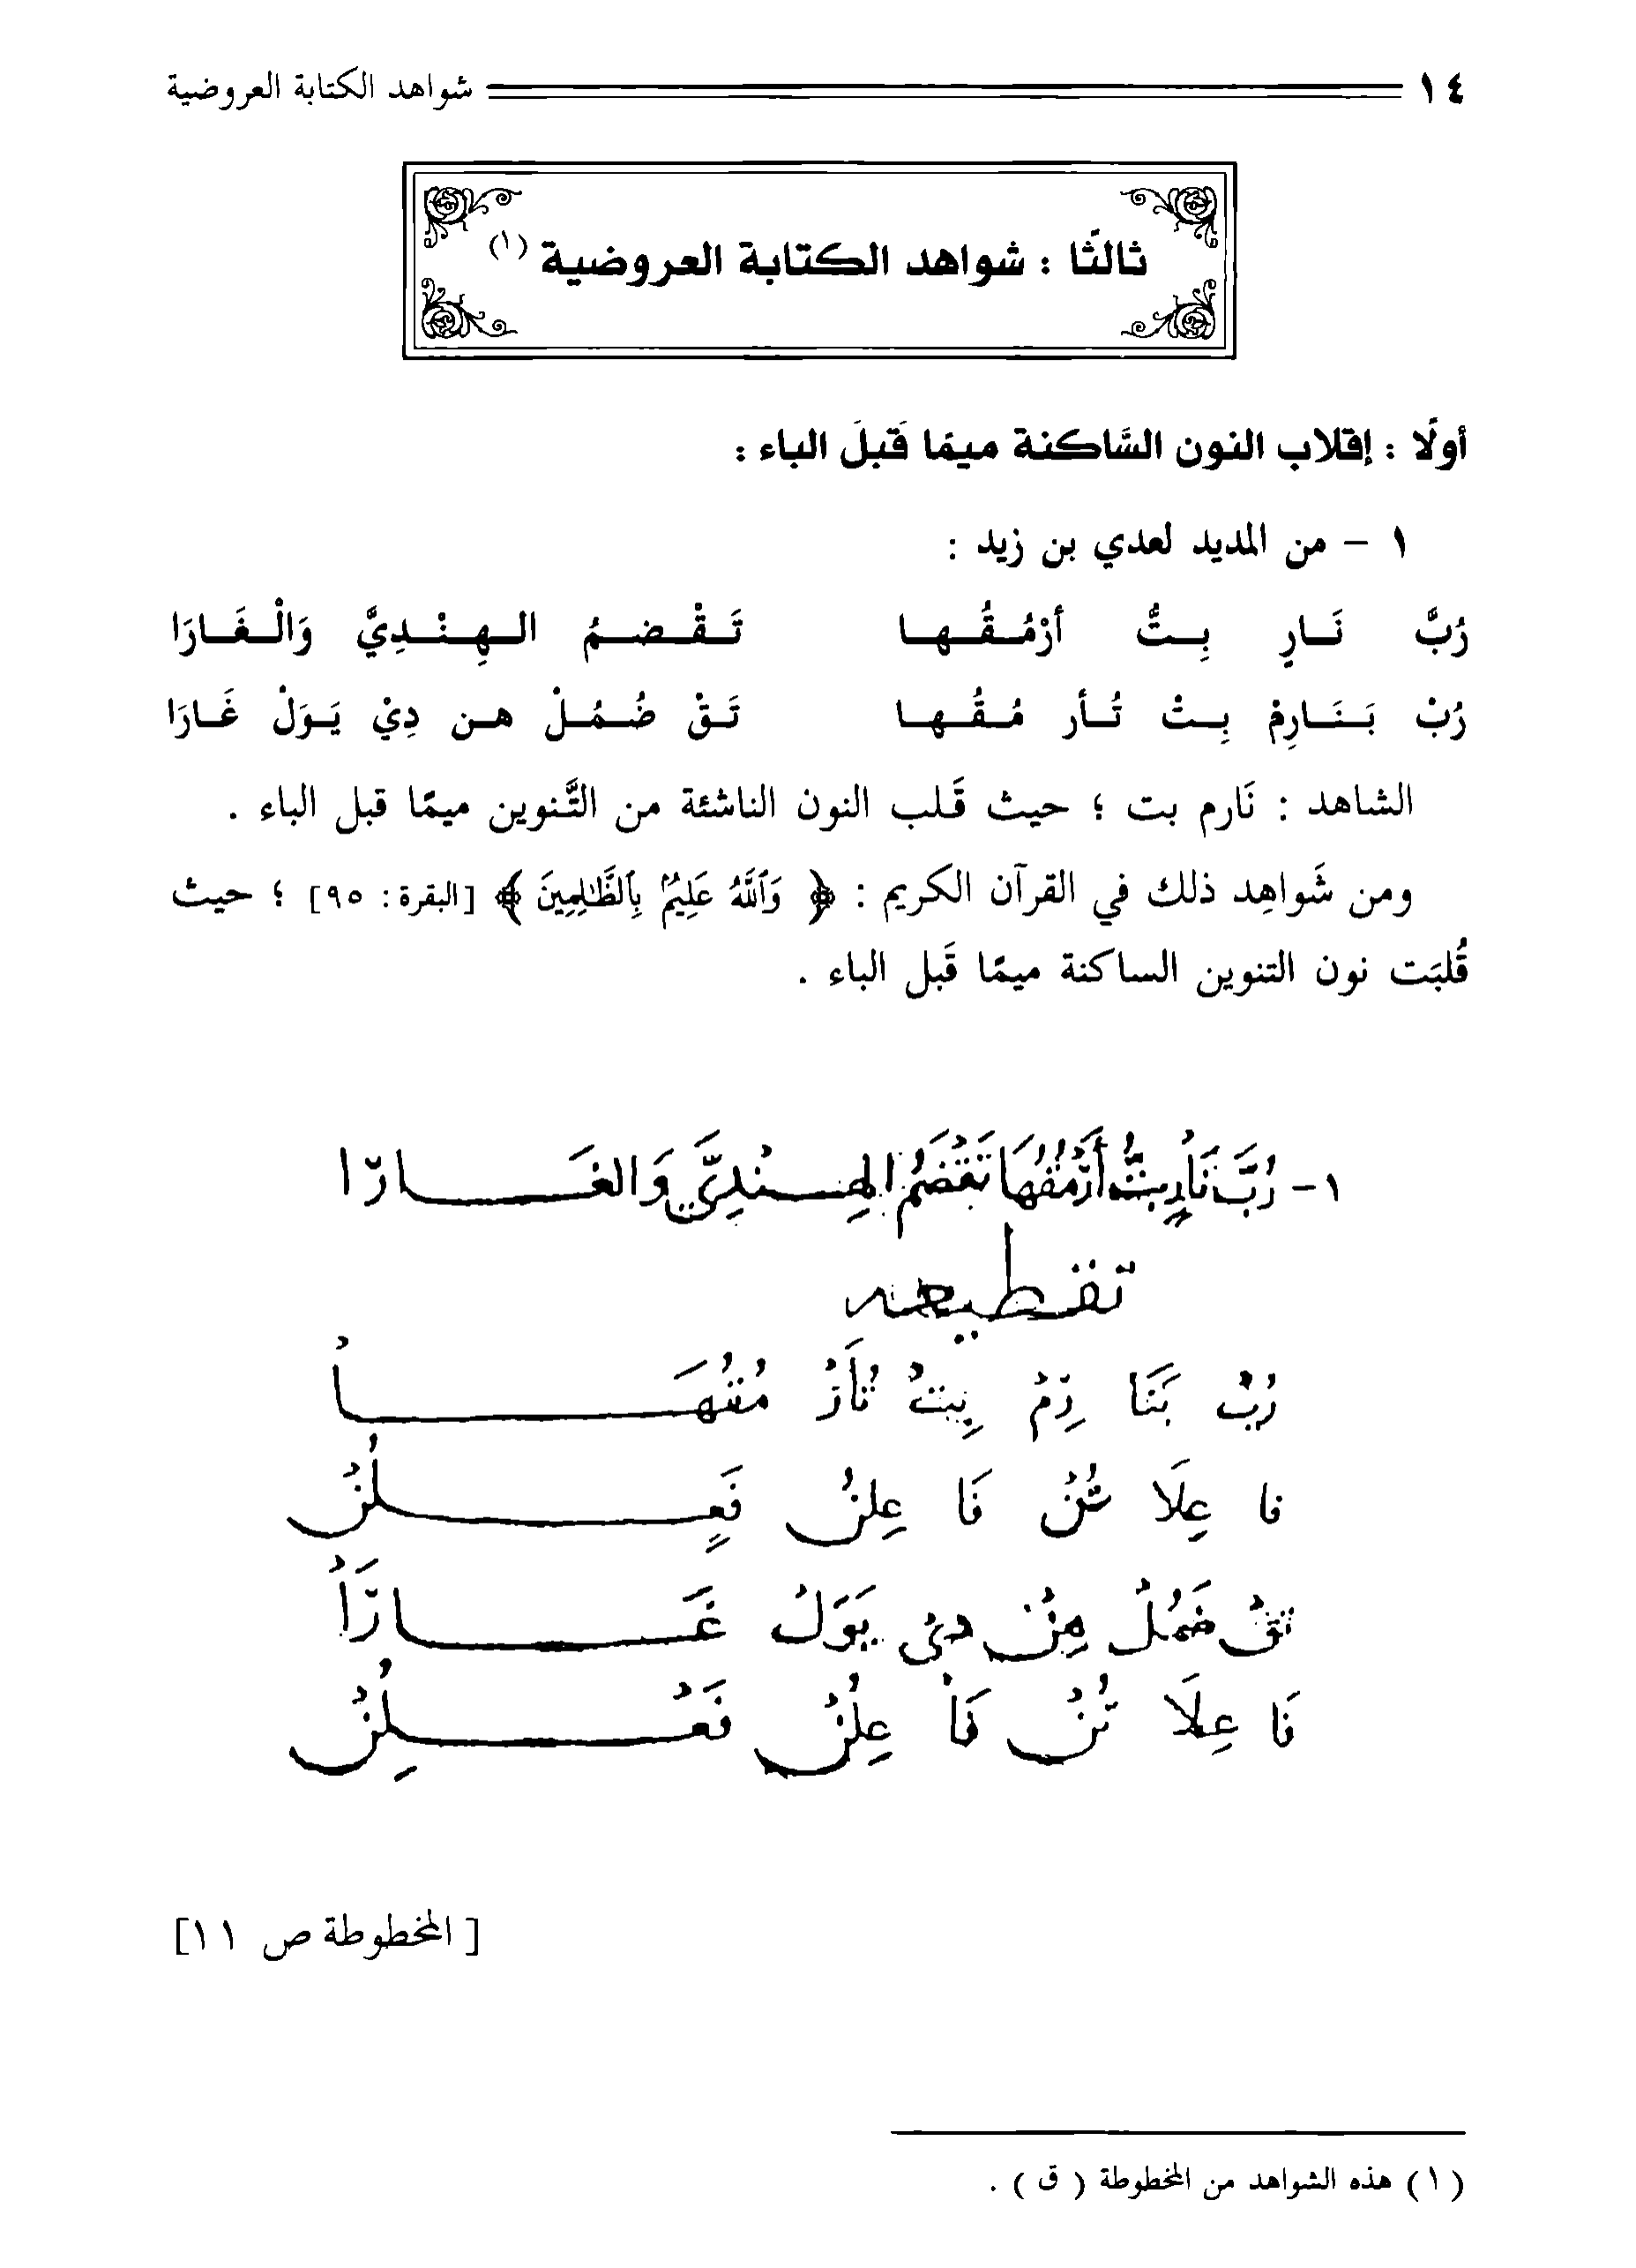 ١٤ شواهد الكتابة العروضية
ثالثًا : شواهد الكتابة العروضية (١)
أولًا : إقلاب النون السَّاكنة ميمًا قَبلَ الباء :
١ - من المديد لعدي بن زيد :
رُبَّ نَـارٍ بِـتُّ أرْمُـقُـهـا تَـقْـضـمُ الـهِـنْـدِيَّ وَالْـغَـارَا
رُبْ بَـنَـارِمْ بِـتْ تُـأر مُـقُـهـا تَـقْ ضُـمُـلْ هـن دِيْ يَـوَلْ غَـارَا
الشاهد : نَارم بت ؛ حيث قَلب النون الناشئة من التَّنوين ميمًا قبل الباء .
ومن شَواهِد ذلك في القرآن الكريم : ﴿ وَٱللَّهُ عَلِيمٌۢ بِٱلظَّٰلِمِينَ ﴾ [البقرة: ٩٥] ؛ حيث
قُلبَت نون التنوين الساكنة ميمًا قَبل الباء .
١- رُبَّ نَارٍ بِتُّ أَرْمُقُهَا تَقْضَمُ الهِـنْدِيَّ وَالغَـارَا
تقطيعه
رُبْ بَنَا رِمْ بِتْ تُأَرْ مُقُهَـا
فا عِلَا تُنْ فَا عِلُنْ فَعِـلُنْ
تَقْ ضَمُلْ هِنْ دِيْ يَوَلْ غَـارَا
فَا عِلَا تُنْ فَا عِلُنْ فَعْـلِنْ
[ المخطوطة ص ١١]
(١) هذه الشواهد من المخطوطة ( ق ) .